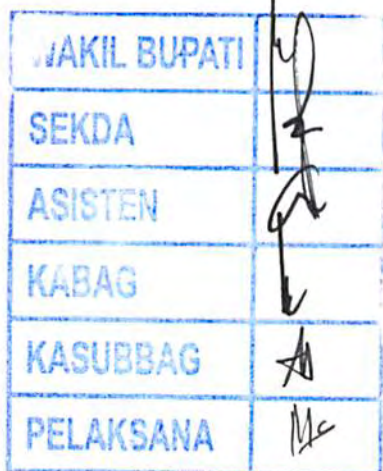 WAKIL BUPATI
SEKDA
ASISTEN
KABAG
KASUBBAG
PELAKSANA